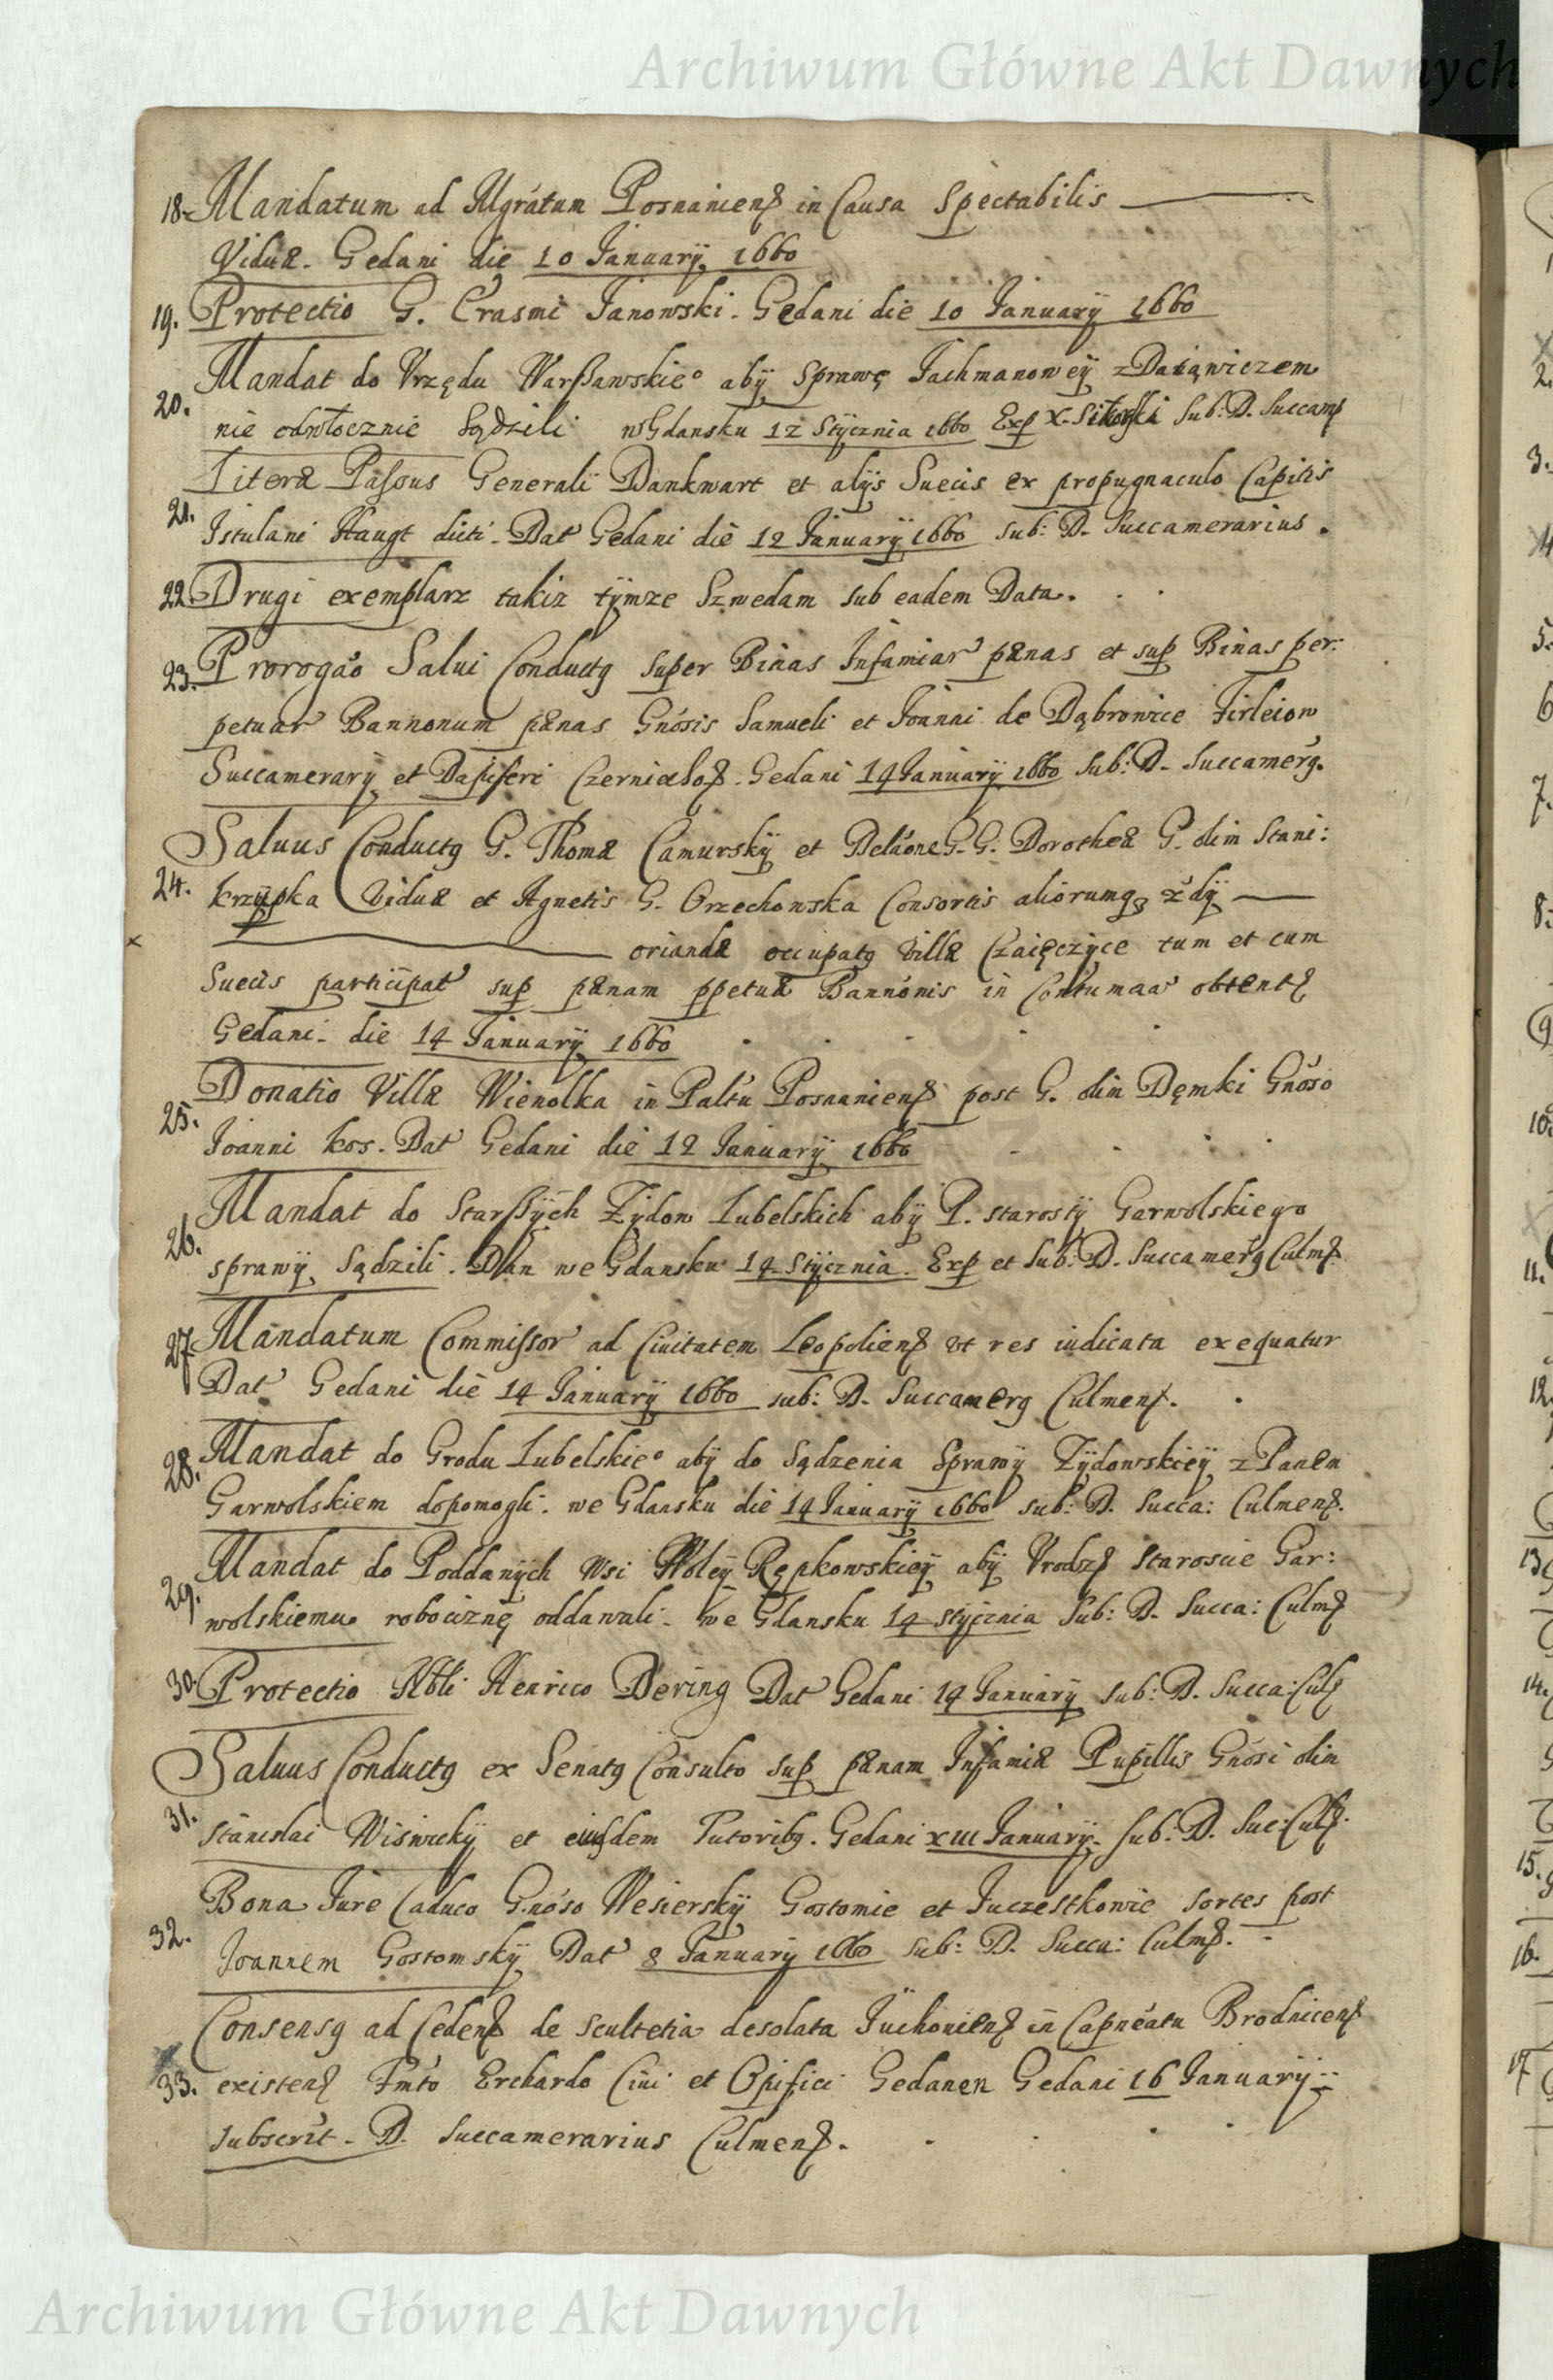 Archiwum Główne Akt Dawnych
18. Mandatum ad Mgrátum Posnaniens in Causa Spectabilis
Viduæ. Gedani die 10 January 1660
19. Protectio G. Erasmi Janowski. Gedani die 10 January 1660
Mandat do Vrzędu Warszawskie° aby Sprawę Jachmanowey z
20. nie odwłocznie Sądzili w Gdansku 12 Stycznia 1660 Exp X. Sub: D. Succam
Literæ Passus Generali Dankwart et alys Suecis ex propugnaculo Capitis
21. Istulani Haugt dicti. Dat Gedani die 12 January 1660 sub: D. Succamerarius.
22. Drugi exemplarz takiz tymze Szwedam sub eadem Data.
23. Prorogáo Salui Conductg super Binas Infamiar pænas et sup Binas per:
petuar Bannonum pænas Gnósis Samueli et Joánni de Dąbrowice Firleiow
Succamerary et Dapiferi Gedani 14 January 1660 Sub: D. Succamerg.
Saluus Conductg G. Thomæ Camursky et G. G. Dorotheæ G. olim Stani:
24. krzypka Viduæ et Agnetis G. Orzechowska Consortis aliorumq
oriandæ occupatg Villæ Czaięczyce tum et cum
Suecis participat sup pænam ppetuæ Bannónis in obtent
Gedani. die 14 January 1660
Donatio Villæ Wienolka in Paltu Posnaniens post G. olim Dęmki Gnóso
25. Joanni Kos. Dat Gedani die 12 January 1660
Mandat do Starszych Zydow Lubelskich aby P. starosty Garwolskiego
26. sprawy Sądzili. Dan we Gdansku 14 Stycznia. Exp et Sub: D. Succamerg Culms
27. Mandatum Commissor ad Ciuitatem Leopoliens vt res iudicata exequatur
Dat Gedani die 14 January 1660 sub: D. Succamerg Culmens.
28. Mandat do Grodu Lubelskie° aby do Sądzenia Sprawy Zydowskiey z Panem
Garwolskiem dopomogli. we Gdansku die 14 January 1660 sub: D. Succa: Culmens.
Mandat do Poddanych Wsi Woley Rępkowskiey aby Vrodz Staroscie Gar:
29. wolskiemu robociznę oddawali. we Gdansku 14 stycznia Sub: D. Succa: Culms
30. Protectio Nbli Henrico Dering Dat Gedani 14 January sub: D. Succa: Culs
Saluus Conductg ex Senatg Consulto sup pænam Infamiæ Pupillis Gnósi olim
31. Stanislai Wisnicky et eiusdem Tutoribg. Gedani XIII January. sub: D. Suc: Culs.
Bona Jure Caduco G.nóso Wesiersky Gostomie et Juczestkowie sortes post
32. Joannem Gostomsky Dat 8 January 1660 sub: D. Succa: Culms.
Consensg ad Cedens de Scultetia desolata in Capneatu Brodnicens
33. existens Fmto Erchardo Ciui et Opifici Gedanen Gedani 16 January
subscrit. D. Succamerarius Culmens.
Archiwum Główne Akt Dawnych